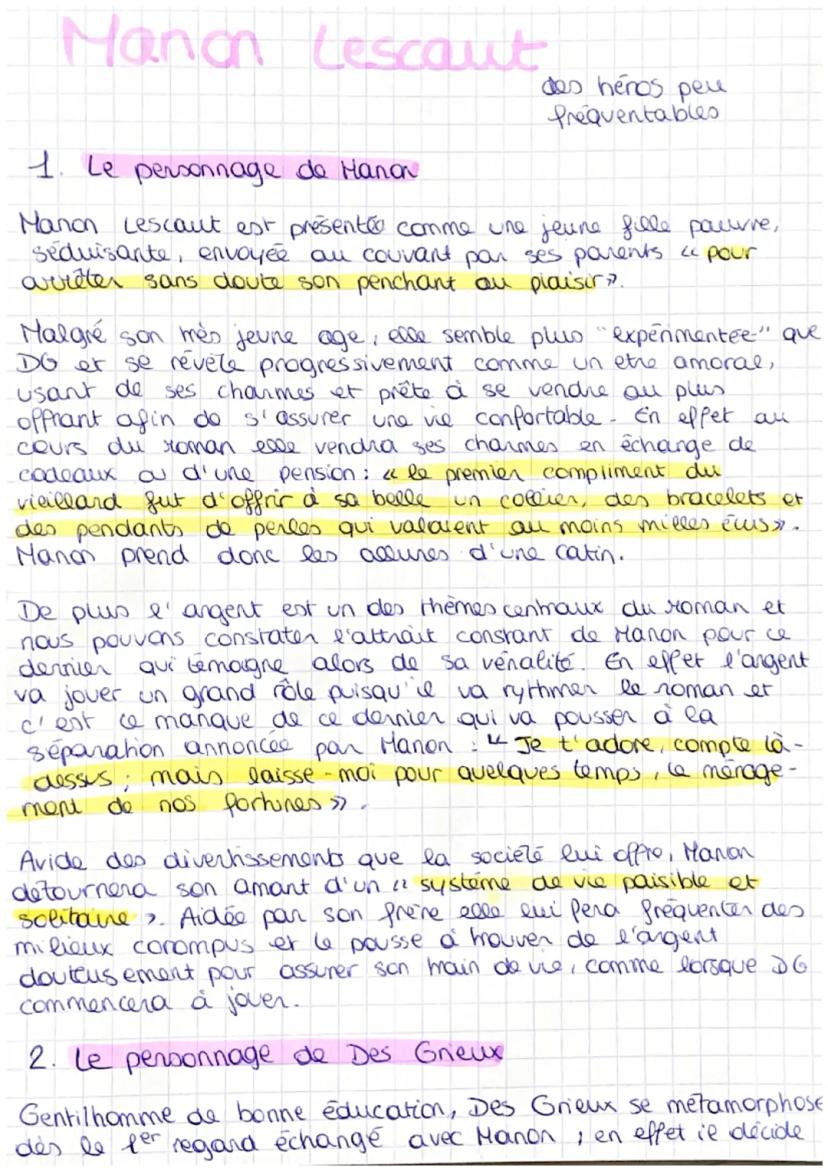 Manon Lescaut
des héros peu
fréquentables
1. Le personnage de Manon
Manon Lescaut est présentée comme une jeune fille pauvre,
séduisante, envoyée au couvant par ses parents « pour
arrêter sans doute son penchant au plaisir ».
Malgré son très jeune age, elle semble plus "expérimentée" que
DG et se révèle progressivement comme un etre amoral,
usant de ses charmes et prête à se vendre au plus
offrant afin de s'assurer une vie confortable. En effet au
cours du roman elle vendra ses charmes en échange de
cadeaux ou d'une pension : « le premier compliment du
vieillard fut d'offrir à sa belle un collier, des bracelets et
des pendants de perles qui valaient au moins milles écus ».
Manon prend donc les allures d'une catin.
De plus l'argent est un des thèmes centraux du roman et
nous pouvons constater l'attrait constant de Manon pour ce
dernier qui témoigne alors de sa vénalité. En effet l'argent
va jouer un grand rôle puisqu'il va rythmer le roman et
c'est le manque de ce dernier qui va pousser à la
séparation annoncée par Manon : « Je t'adore, compte là-
dessus ; mais laisse-moi pour quelques temps, le ménage-
ment de nos fortunes ».
Avide des divertissements que la société lui offre, Manon
detournera son amant d'un « système de vie paisible et
solitaire ». Aidée par son frère elle lui fera fréquenter des
milieux corompus et le pousse à trouver de l'argent
douteusement pour assurer son train de vie, comme lorsque DG
commencera à jouer.
2. Le personnage de Des Grieux
Gentilhomme de bonne éducation, Des Grieux se métamorphose
dès le 1er regard échangé avec Manon ; en effet il décide